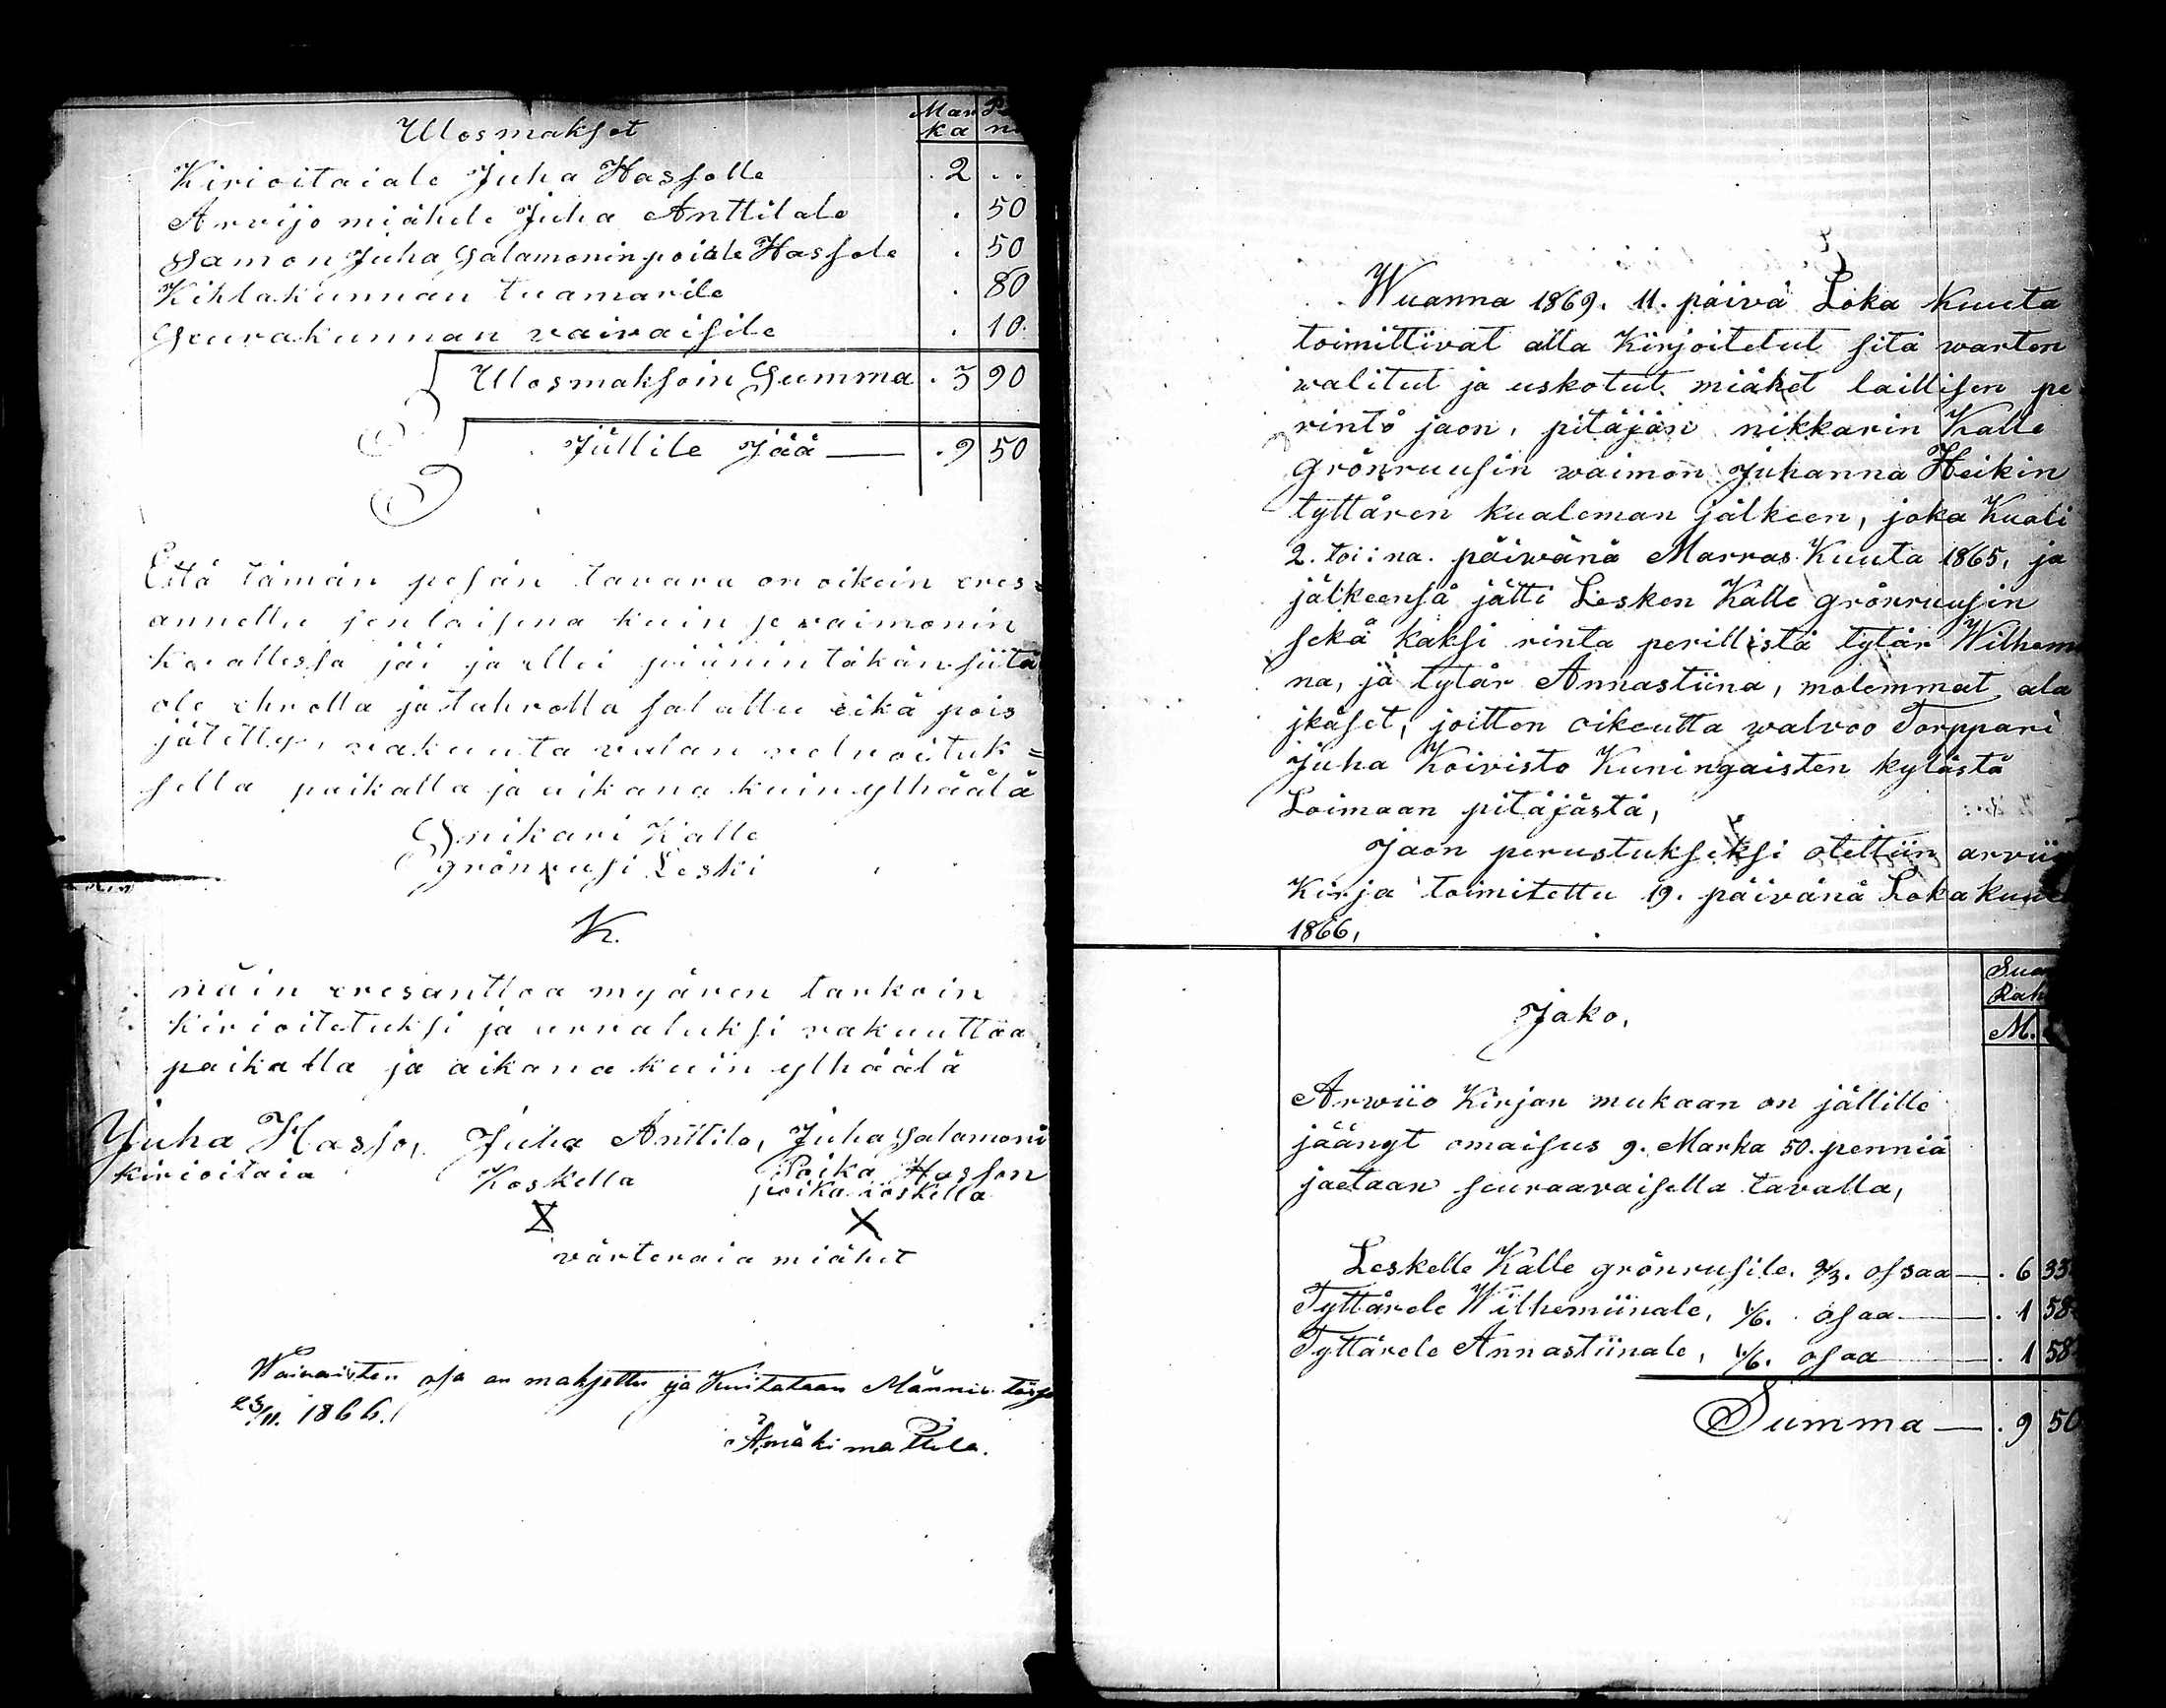 Ulosmakset
Marka Pe ni
Kirioitaiale Juha Hassolle . 2 . .
Arvijo miähele Juha Anttilale . 50
Samon Juha Salamoninpoiale Hassole . 50
Kihlakunnan tuamarile . 80
Seurakunnan vaivaisile . 10.
Ulosmaksoin Summa . 3 90
Jällile Jää — . 9 50
Että tämän pesän tavara on oikein eres=
annettu senlaisena kuin se vaimonin
kuallessa jäi ja ettei piänintäkän siitä
ole ehrolla ja tahrolla salattu eikä pois
jätetty, vakuuta valan velvoituk=
sella paikalla ja aikana kuin ylhäälä
Snikari Kalle
grönrusi Leski
K.
näin eresanttoa myären tarkoin
kirioitetuksi ja arvatuksi vakuuttaa
paikalla ja aikana kuin ylhäälä
Juha Hasso, Juha Anttila, Juha Salamoni
kirioitaia Koskella Poika Hasson
poika ioskella
X X
värteraia miähet
Waivaisten osa on maksettu ja Kuitataan
23/11. 1866.
Wuanna 1869. 11. päivä Loka kuuta
toimittivat alla Kirjoitetut sitä warten
walitut ja uskotut miähet laillisen pe
rintö jaon, pitäjän nikkarin Kalle
grönruusin waimon Juhanna Heikin
tyttären kualeman jälkeen, joka Kuoli
2. toi:na. päiwänä Marras Kuuta 1865, ja
jälkeensä jätti Lesken Kalle grönruusin
sekä kaksi rinta perillistä tytär Wilhem
na, ja tytär Annastiina, molemmat ala
jkäset, joitten oikeutta walvoo Torppari
Juha Koivisto Kuningaisten kylästä
Loimaan pitäjästä,
Jaon perustukseksi otettiin arvii
Kirja toimitettu 19. päivänä Loka kuu
1866,
Sua
Rah
Jako,
M.
Arwiio Kirjan mukaan on jällille
jäängt omaisus 9. Marka 50. penniä
jaetaan seuraavaisella tavalla,
Leskelle Kalle grönrusile. 2/3. ossaa — . 6 33
Tyttärele Wilhemiinale, 1/6. osaa — . 1 58
Tyttärele Annastiinale, 1/6. osaa — . 1 58
Summa — . 9 50